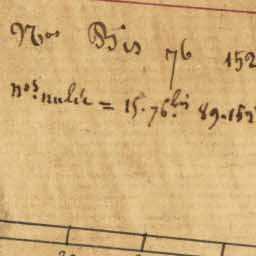 Nos Bis 76 152
nos. nulle = 15. 76.bis 89. 152